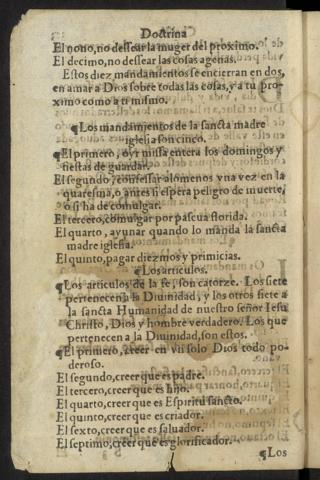 Doctrina
El nono, no dessear la muger del proximo.
El decimo, no dessear las cosas agenas.
Estos diez mandamientos se encierran en dos,
en amar a Dios sobre todas las cosas, y a tu pro-
ximo como a ti mismo.
¶Los mandamientos de la sancta madre
iglesia son cinco.
¶El primero, oyr missa entera los domingos y
fiestas de guardar.
El segundo, confessar alomenos vna vez en la
quaresma, o antes si espera peligro de muerte,
o si ha de comulgar.
El tercero, comulgar por pascua florida.
El quarto, ayunar quando lo manda la sancta
madre iglesia.
El quinto, pagar diezmos y primicias.
¶Los articulos.
¶Los articulos de la fe, son catorze. Los siete
pertenecen a la Diuinidad, y los otros siete a
la sancta Humanidad de nuestro señor Iesu
Christo, Dios y hombre verdadero. Los que
pertenecen a la Diuinidad, son estos.
¶El primero, creer en vn solo Dios todo po-
deroso.
El segundo, creer que es padre.
El tercero, creer que es hijo.
El quarto, creer que es Espiritu sancto.
El quinto, creer que es criador.
El sexto, creer que es saluador.
El septimo, creer que es glorificador.
¶Los